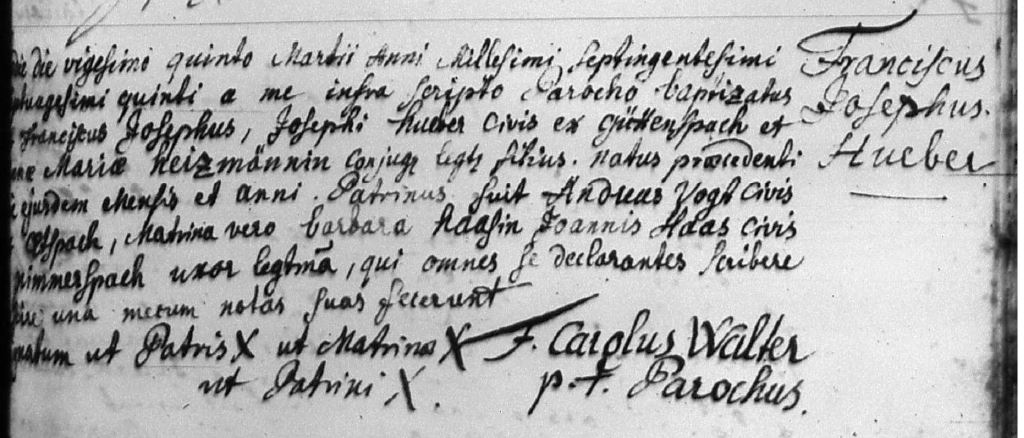 die vigesimo quinto Martii Anni Millesimi Septingentesimi
quinti a me infra scripto Parocho baptizatus
Franciscus Josephus, Josephi Hueber Civis ex Güttenspach et
Mariæ Heizmännin Conjugę legtę filius. natus præcedenti
ejusdem Mensis et anni. Patrinus fuit Andreas Vogt Civis
Matrina vero barbara Haasin Joannis Haas Civis
uxor legtmā, qui omnes se declarantes scribere
una mecum notas suas fecerunt
ut Patris X ut Matrinæ X F. Carolus Walter
ut Patrini X. p.t. Parochus.
Franciscus
Josephus.
Hueber